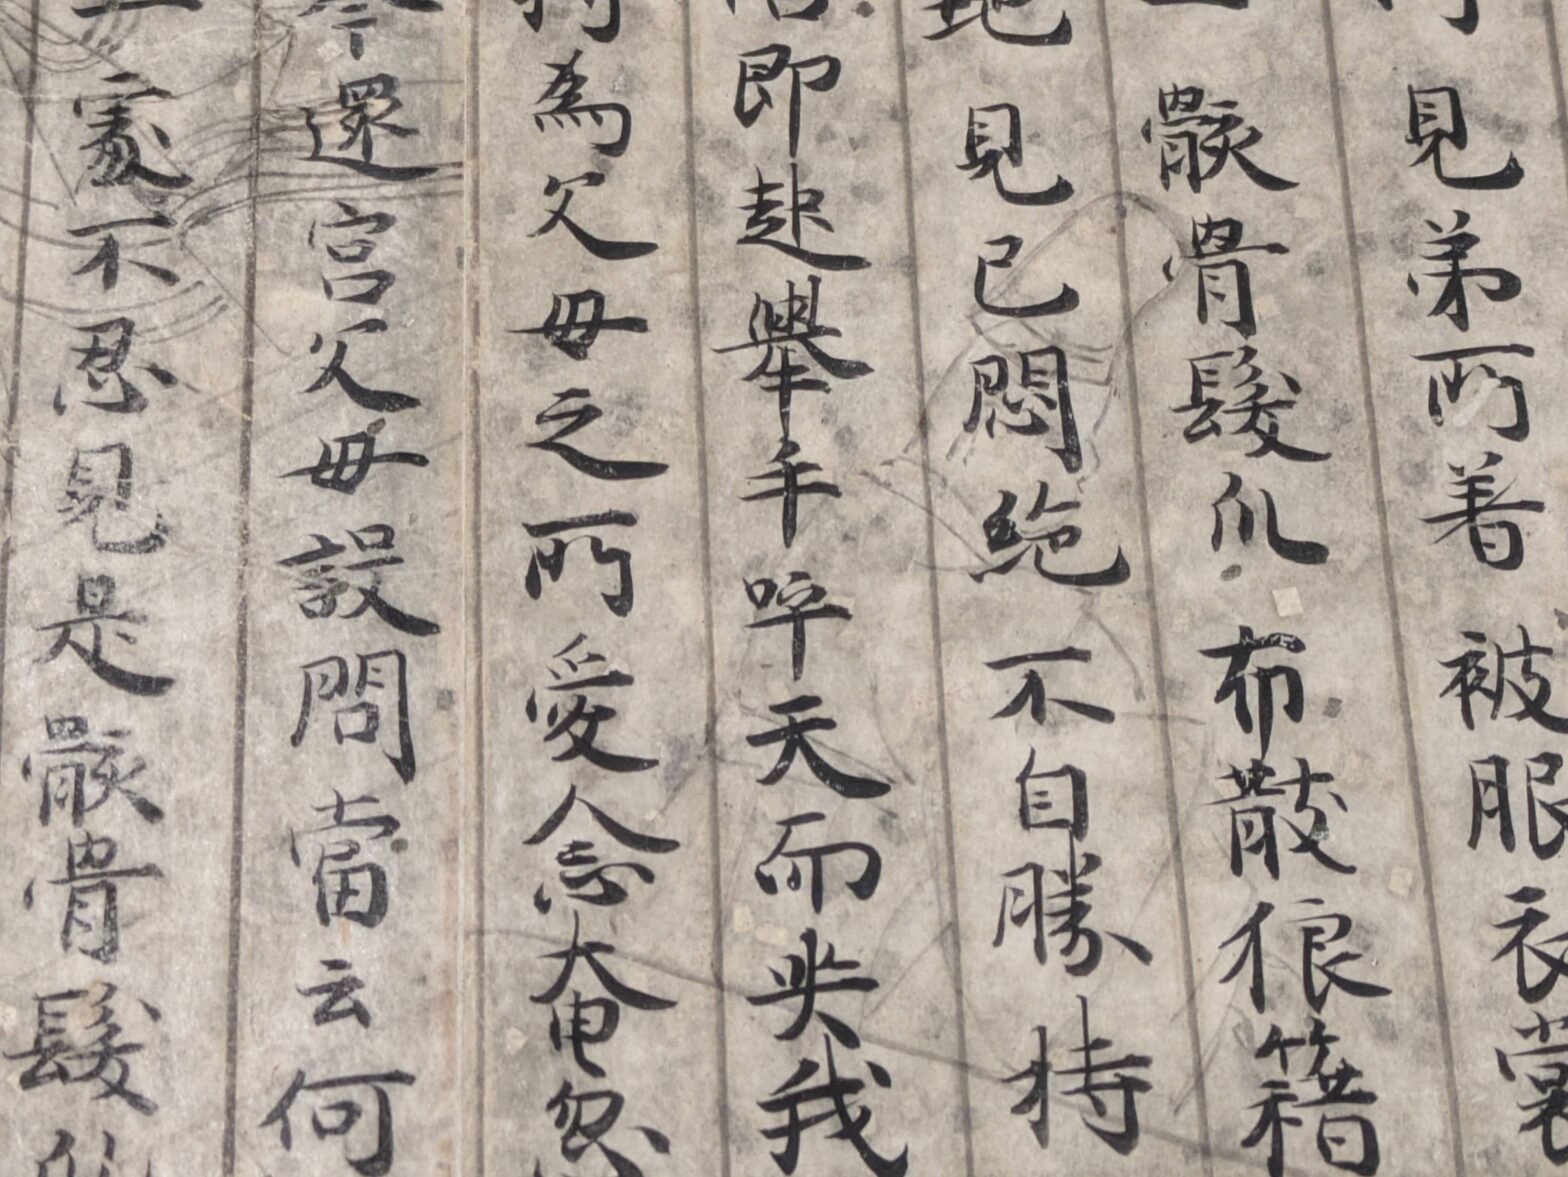 見弟所著被服衣裳
骸骨髮爪布散狼籍
見已悶絕不自勝持
即赴舉手呼天而哭我
為父母之所愛念奄忽
還宮父母設問當云何
處不忍見是骸骨髮